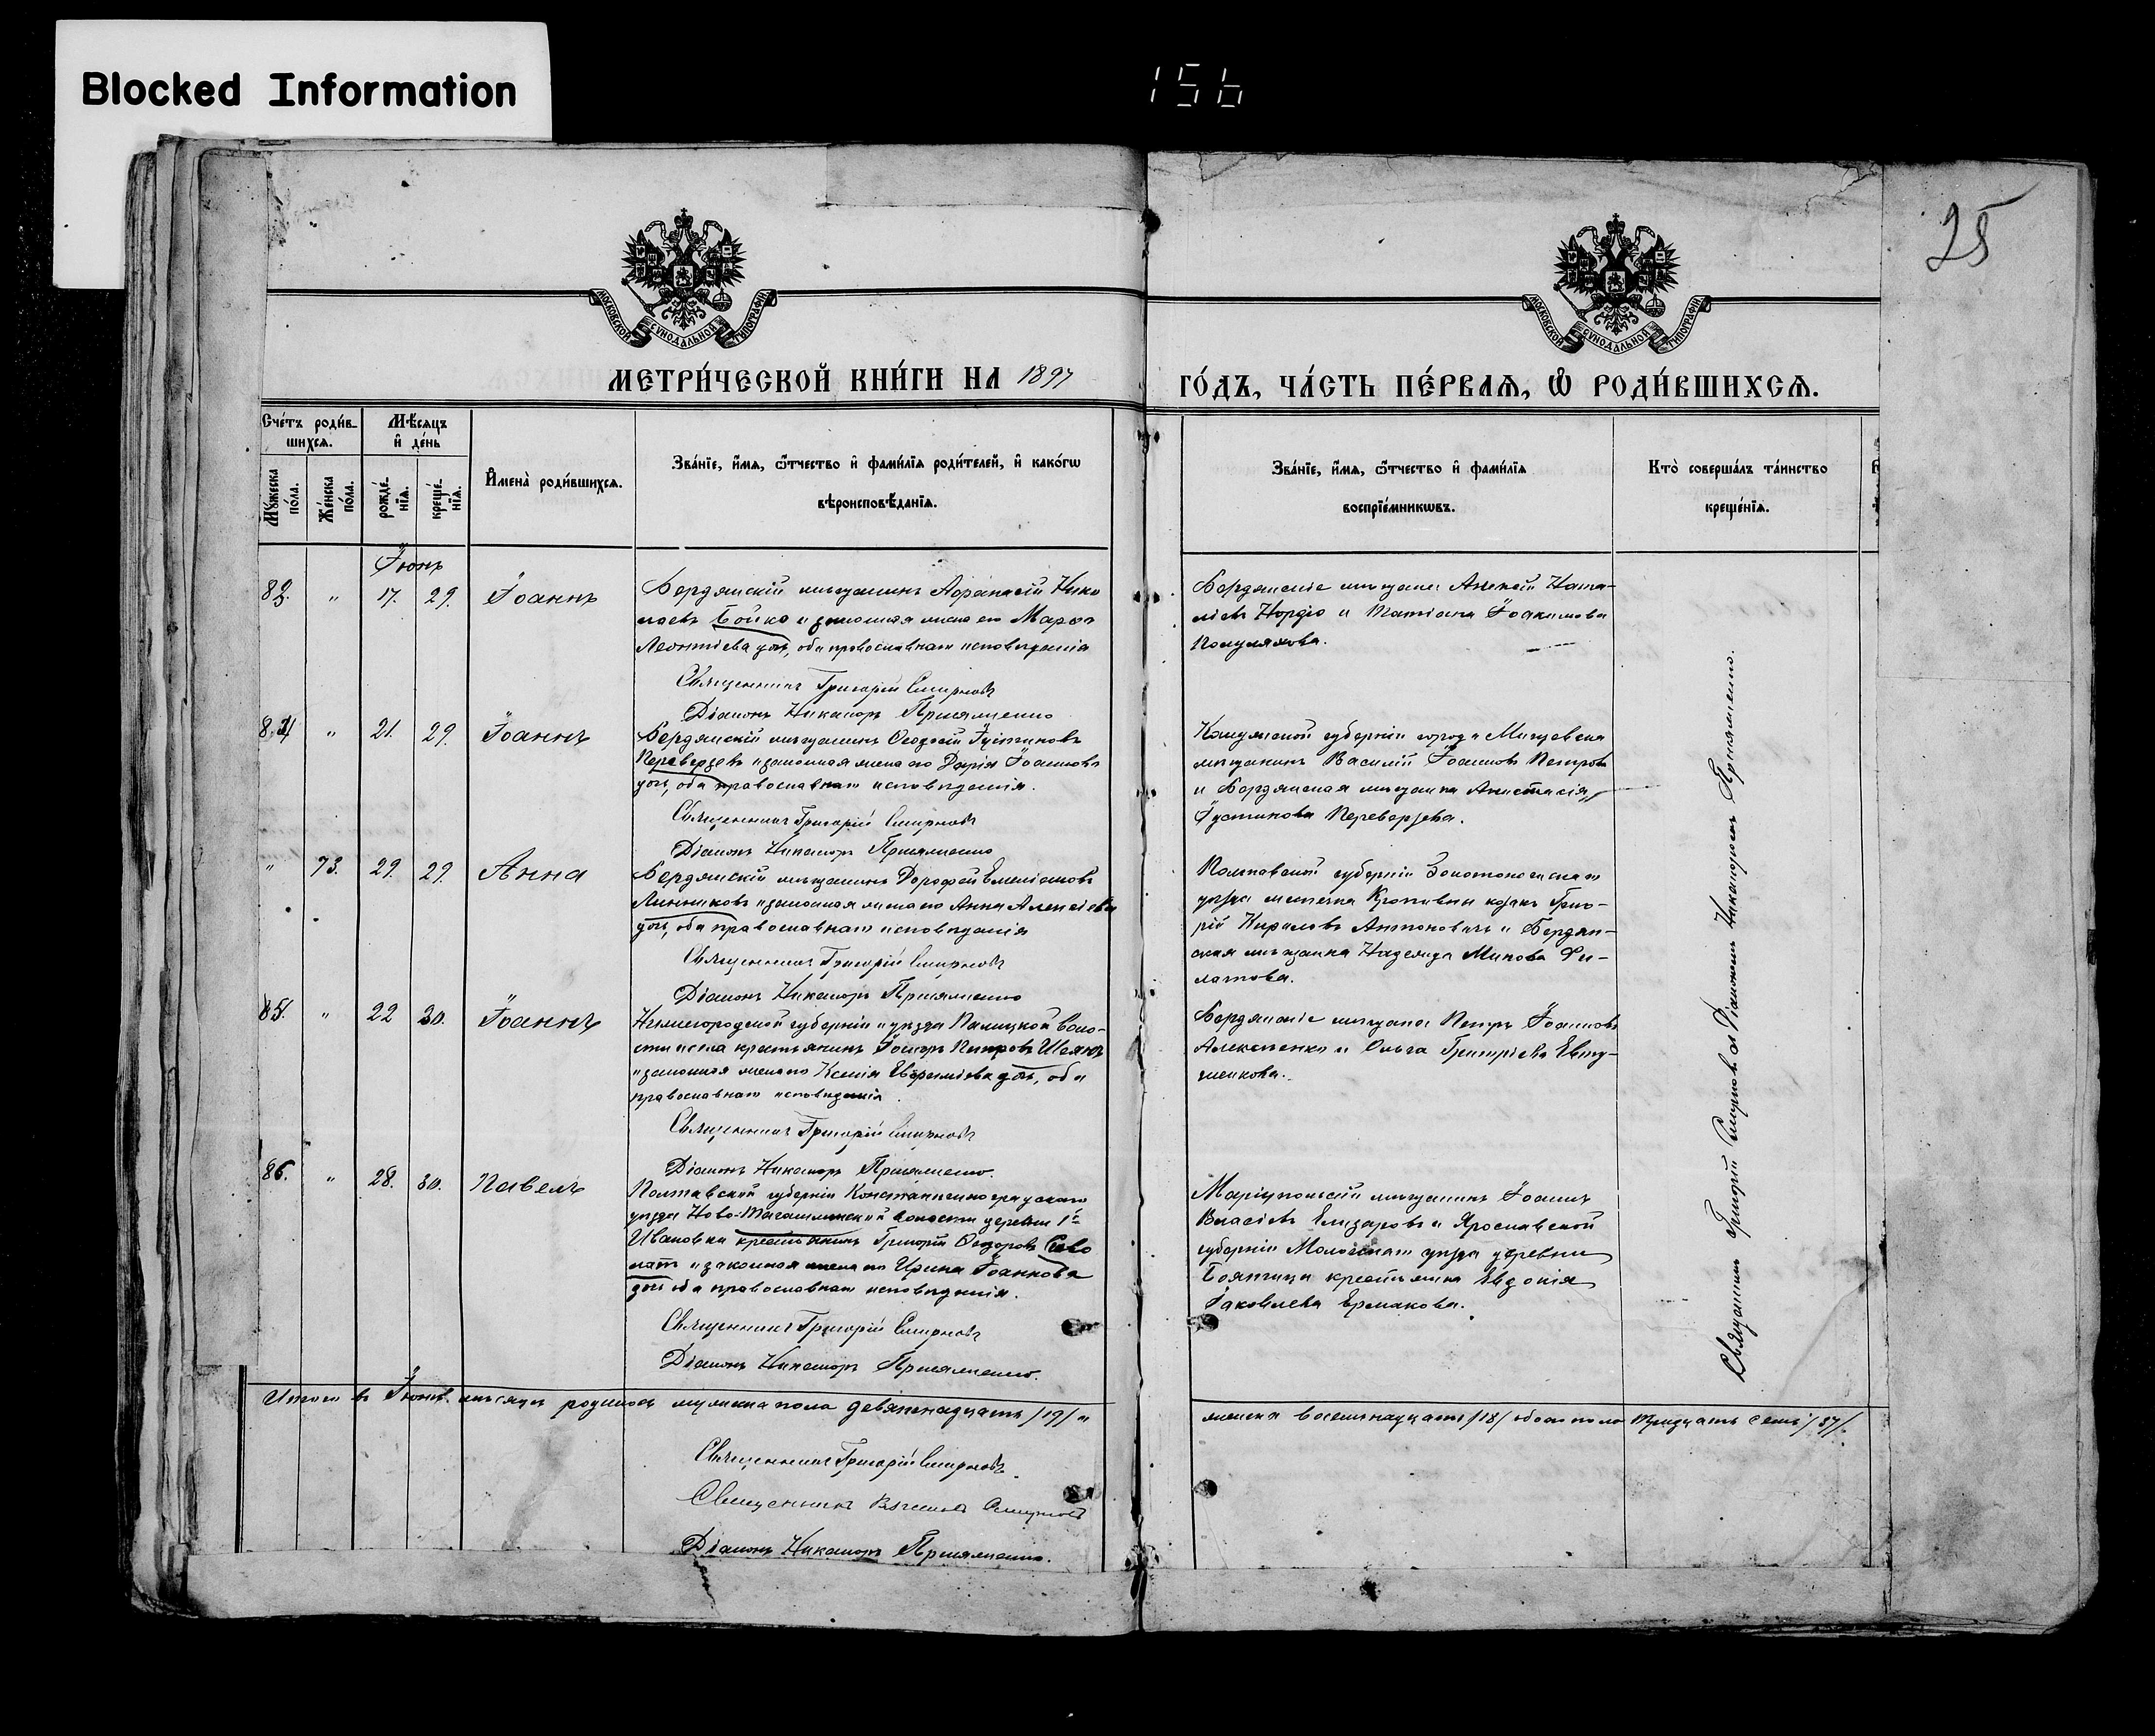 Blocked Information
156
25
МОСКОВСКОЙ СУНОДАЛЬНОЙ ТИПОГРАФІИ
МОСКОВСКОЙ СУНОДАЛЬНОЙ ТИПОГРАФІИ
МЕТРИ́ЧЕСКОЙ КНИ́ГИ НА 1897
ГО́ДЪ, ЧА́СТЬ ПЕ́РВАѦ, Ѿ РОДИ́ВШИХСѦ.
Сче́тъ роди́в-
шихсѧ.
Мѣ́сѧцъ
и҆ де́нь
Мꙋ́жеска по́ла.
Же́нска по́ла.
рожде́-
нїѧ.
креще́-
нїѧ.
И҆мена̀ роди́вшихсѧ.
Зва́нїе, и҆́мѧ, ѻ҆́тчество и҆ фами́лїѧ роди́телей, и҆ како́гѡ
вѣроисповѣ́данїѧ.
Зва́нїе, и҆́мѧ, ѻ҆́тчество и҆ фами́лїѧ
воспрїе́мникѡвъ.
Кто̀ соверша́лъ та́инство
креще́нїѧ.
Іюнь
83. " 17. 29. Іоаннъ
Бердянскій мѣщанинъ Афанасій Нико
лаевъ Бойко и законная жена его Марѳа
Леонтіева дочь, оба православнаго исповѣданія
Священникъ Григорій Смирновъ
Діаконъ Никаноръ
Бердянскіе мѣщане Алексѣй
и Татіана Іоакимова
84 " 21. 29. Іоаннъ
Бердянскій мѣщанинъ Ѳеодосій Іустиновъ
Переверзевъ и законная жена его Дарія Іоаннова
дочь, оба православнаго исповѣданія.
Священникъ Григорій Смирновъ
Діаконъ Никаноръ
Калужской губерніи города Мещовска
мѣщанинъ Василій Іоанновъ Петровъ
и Бердянская мѣщанка Анастасія
Іустинова Переверзева.
" 73. 29. 29. Анна
Бердянскій мѣщанинъ Дороѳей Емеліановъ
Линниковъ и законная жена его Анна Алексіева
дочь, оба православнаго исповѣданія
Священникъ Григорій Смирновъ
Діаконъ Никаноръ
Полтавской губерніи Золотоношскаго
уѣзда мѣстечка Кропивны козакъ Григо-
рій Кириловъ Антоновичъ и Бердян-
ская мѣщанка Надежда Минова Фи-
латова.
85. " 22 30. Іоаннъ
Нижегородской губерніи и уѣзда Палицкой воло-
сти и села крестьянинъ Петровъ
и законная жена его Ксенія Евфиміева дочь, оба
православнаго исповѣданія.
Священникъ Григорій Смирновъ
Діаконъ Никаноръ
Бердянскіе мѣщане Петръ Іоанновъ
Алексѣенко и Ольга Григоріева Евту-
шенкова.
86. " 28. 30. Павелъ
Полтавской губерніи Константиноградскаго
уѣзда Ново- волости деревни 1й
Ивановки крестьянинъ Григорій Ѳеодоровъ
и законная жена его Ирина Іоаннова
дочь оба православнаго исповѣданія.
Священникъ Григорій Смирновъ
Діаконъ Никаноръ
Маріупольскій мѣщанинъ Іоаннъ
Власіевъ Елизаровъ и Ярославской
губерніи Мологскаго уѣзда деревни
крестьянка Евдокія
Іаковлева Ермакова.
Священникъ Григорій Смирновъ съ Діакономъ Никаноромъ
Итого въ Іюнѣ мѣсяцѣ родилось мужеска пола девятнадцать /19/ и
женска восемнадцать /18/ обоего пола тридцать семь /37/.
Священникъ Григорій Смирновъ.
Священникъ
Діаконъ Никаноръ